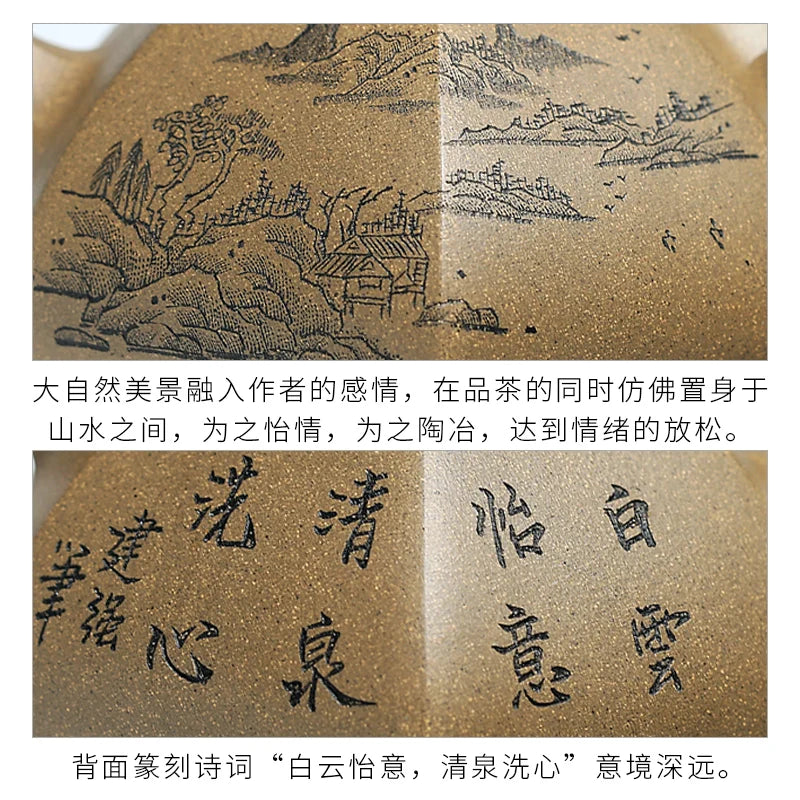 大自然美景融入作者的感情，在品茶的同时仿佛置身于
山水之间，为之怡情，为之陶冶，达到情绪的放松。
白雲
怡意
清泉
洗心
建强
笔
背面篆刻诗词“白云怡意，清泉洗心”意境深远。